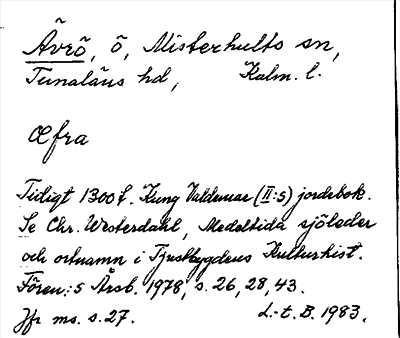 Ävrö, ö, Misterhults sn,
Tunaläns hd, Kalm. l.
Æfra
Tidigt 1300 t. Kung Valdemar (II:s) jordebok.
Se Chr. Westerdahl, Medeltida sjöleder
och ortnamn i Tjustbygdens Kulturhist.
Fören.:s Årsb. 1978, s. 26, 28, 43.
Jfr ms. s. 27. L.-t. B. 1983.